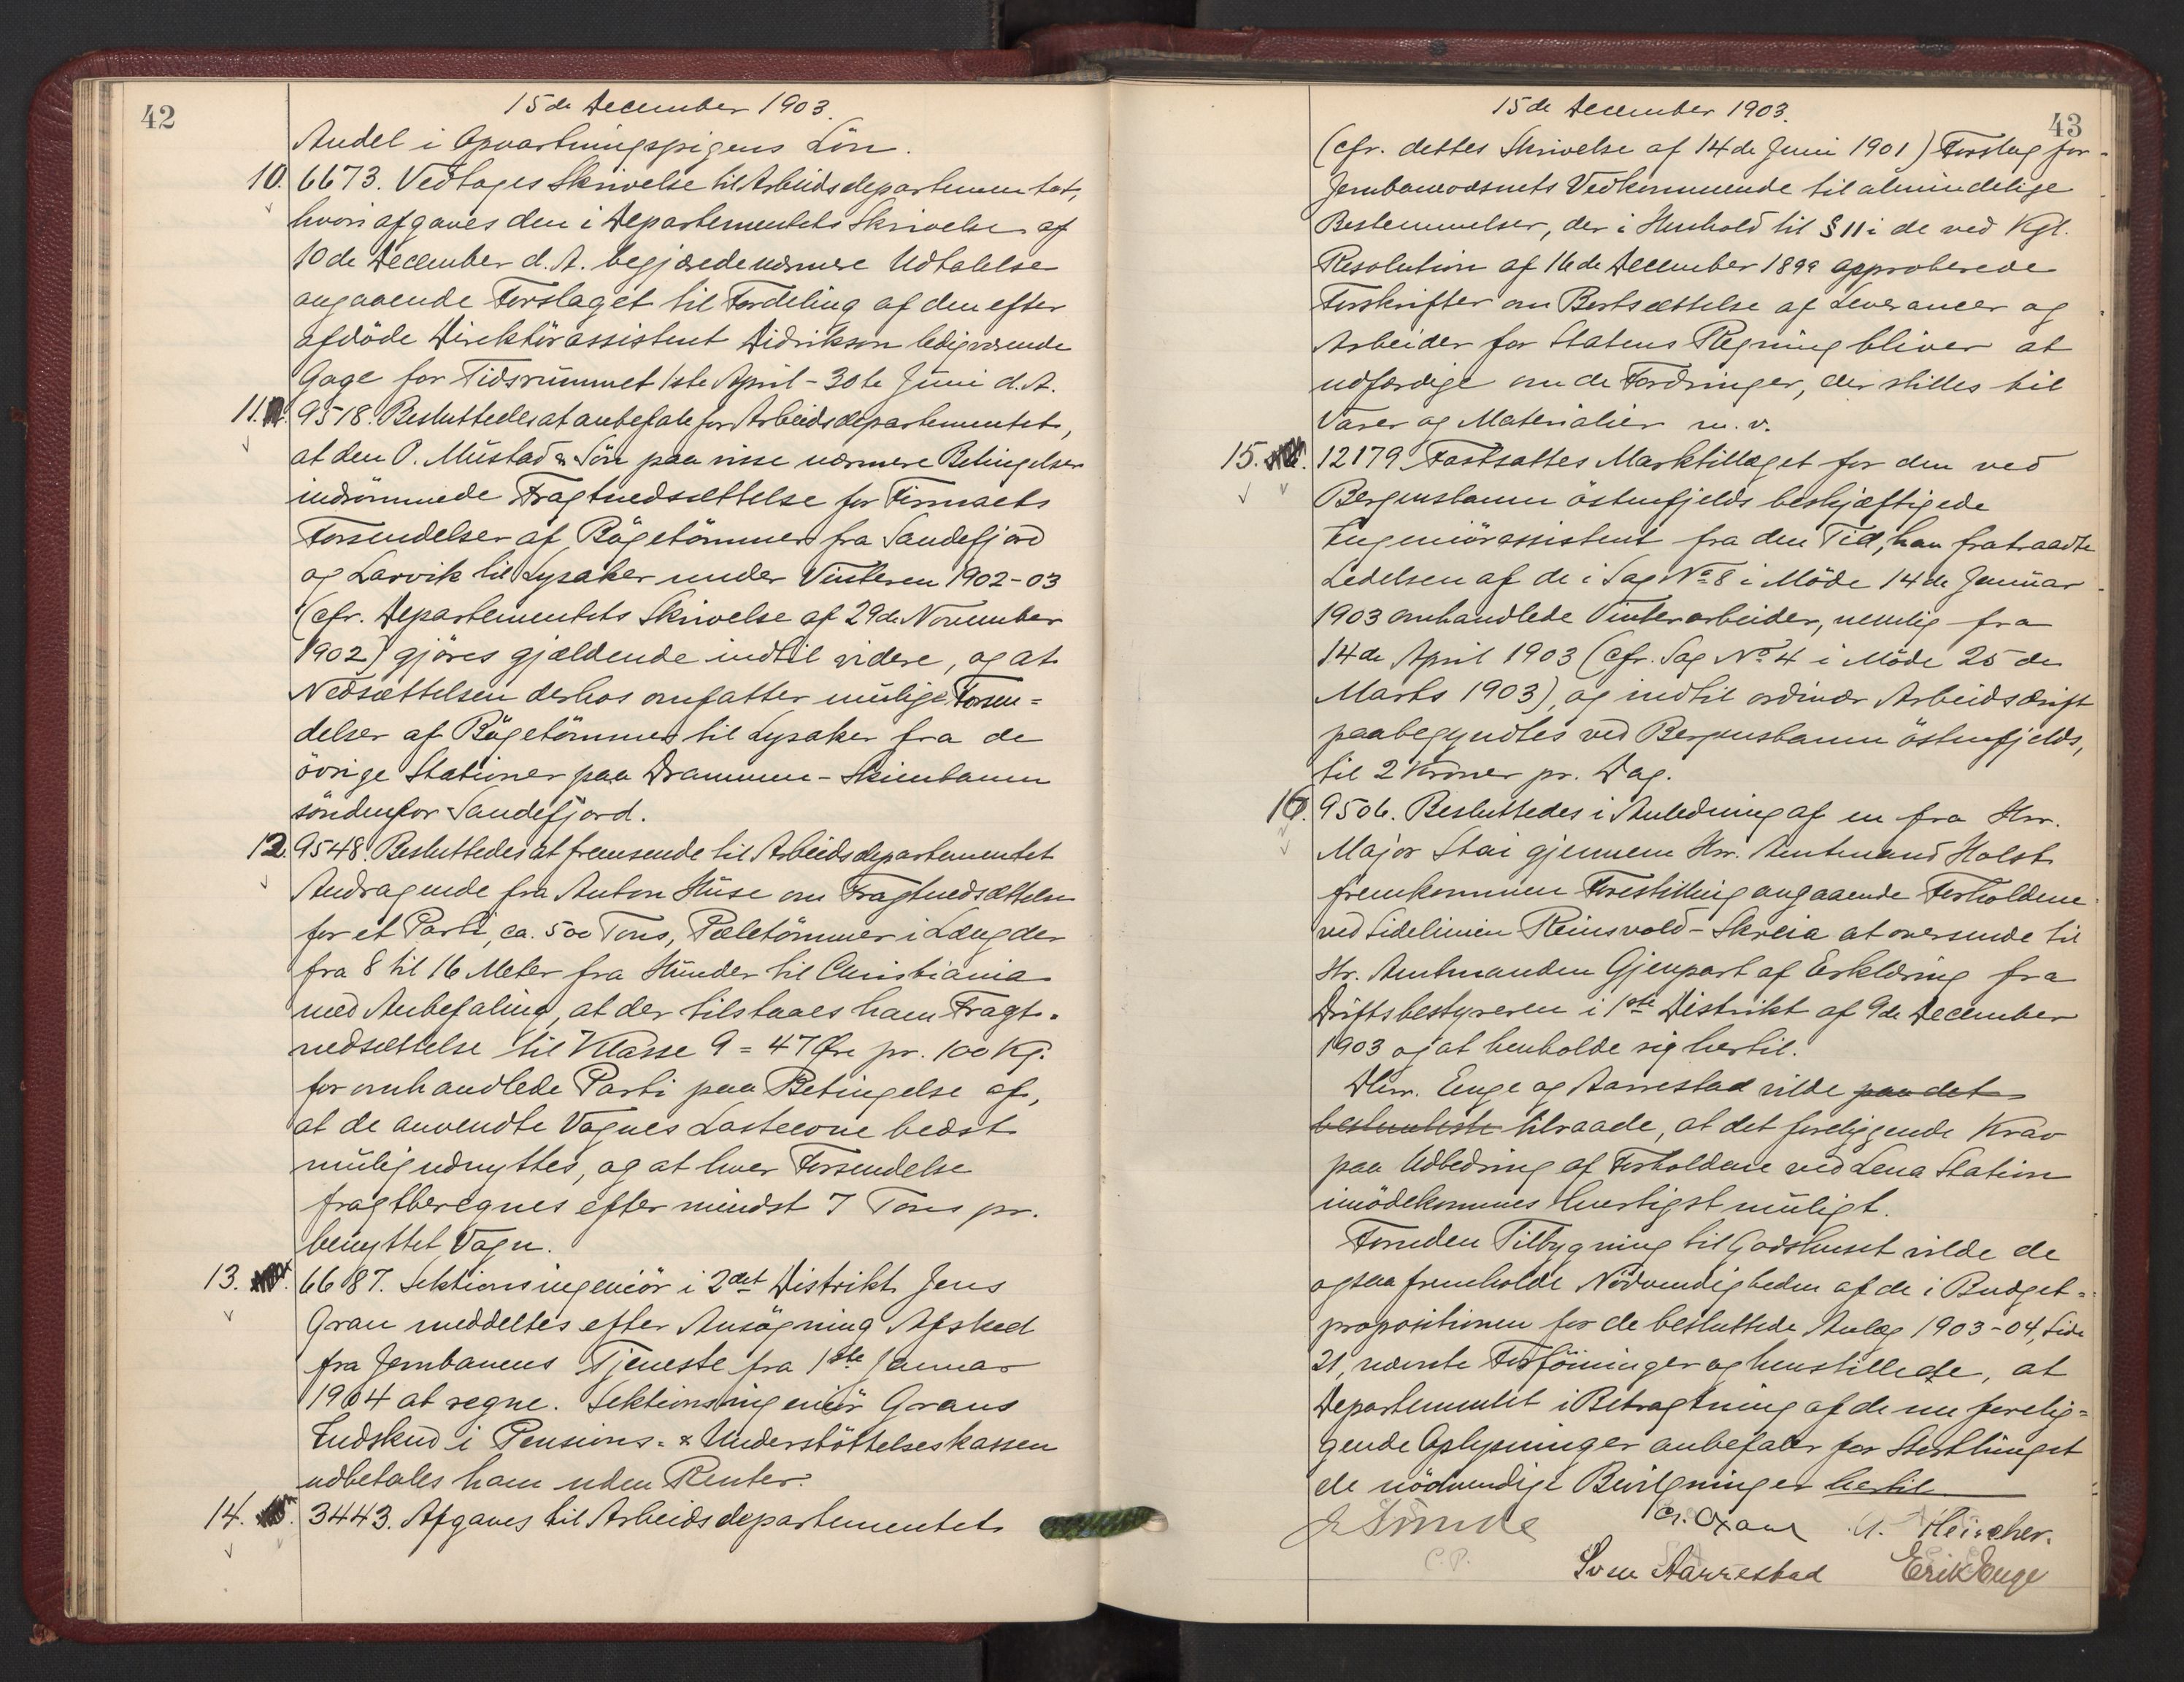 42
15de December 1903.
Andel i Opvartningspigens Lön.
10. 6673. Vedtages Skrivelse til Arbeidsdepartementet,
hvori afgaves den i Departementets Skrivelse af
10de December d. A. begjærede nærmere Udtalelse
angaaende Forslaget til Fordeling af den efter
afdöde Direktörassistent Didrikson ledigværende
Gage for Tidsrummet 1ste April - 30te Juni d. A.
11. 9518. Besluttedes at anbefale for Arbeidsdepartementet,
at den O. Mustad & Sön paa visse nærmere Betingelser
indrömmede Fragtnedsættelse for Firmaets
Forsendelser af Bögetömmer fra Sandefjord
og Larvik til Lysaker under Vinteren 1902-03
(cfr. Departementets Skrivelse af 29de November
1902) gjöres gjældende indtil videre, og at
Nedsættelsen derhos omfatter mulige Forsen=
delser af Bögetömmer til Lysaker fra de
övrige Stationer paa Drammen-Skienbanen
söndenfor Sandefjord.
12. 9548. Besluttedes at fremsende til Arbeidsdepartementet
Andragende fra Anton Huse om Fragtnedsættelse
for et Parti, ca. 500 Tons, Pæletömmer i Længder
fra 8 til 16 Meter fra Hunder til Christiania
med Anbefaling, at der tilstaaes ham Fragt=
nedsættelse til Klasse 9 = 47 Øre pr. 100 Kg.
for omhandlede Parti paa Betingelse af,
at de anvendte Vognes Lasteevne bedst
mulig udnyttes, og at hver Forsendelse
fragtberegnes efter mindst 7 Tons pr.
benyttet Vogn.
13. 6687. Sektionsingeniör i 2det Distrikt Jens
Gran meddeltes efter Ansögning Afsked
fra Jernbanens Tjeneste fra 1ste Januar
1904 at regne. Sektionsingeniör Grans
Indskud i Pensions- & Understöttelseskassen
udbetales ham uden Renter.
14. 3443. Afgaves til Arbeidsdepartementet
43
15de December 1903.
(cfr. dettes Skrivelse af 14de Juni 1901) Forslag for
Jernbanevæsenets Vedkommende til almindelige
Bestemmelser, der i Henhold til § 11 i de ved Kgl.
Resolution af 16de December 1899 approberede
Forskrifter om Bortsættelse af Leverancer og
Arbeider for Statens Regning bliver at
udfærdige om de Fordringer, der stilles til
Varer og Materialier m. v.
15. 12179. Fastsattes Marktillæget for den ved
Bergensbanen östenfjelds beskjæftigede
Ingeniörassistent fra den Tid, han fratraadte
Ledelsen af de i Sag No 8 i Möde 14de Januar
1903 omhandlede Vinterarbeider, nemlig fra
14de April 1903 (cfr. Sag No 4 i Möde 25de
Marts 1903), og indtil ordinær Arbeidsdrift
paabegyndtes ved Bergensbanen östenfjelds,
til 2 Kroner pr. Dag.
16. 9506. Besluttedes i Anledning af en fra Hrr.
Major Stai gjennem Hrr. Amtmand Holst
fremkommen Forestilling angaaende Forholdene
ved Sidelinien Reinsvold-Skreia at oversende til
Hr. Amtmanden Gjenpart af Erklæring fra
Driftsbestyreren i 1ste Distrikt af 9de December
1903 og at henholde sig hertil.
DHrr. Enge og Aarrestad vilde paa det
bestemteste tilraade, at det foreliggende Krav
paa Udbedring af Forholdene ved Lena Station
imödekommes hurtigst muligt.
Foruden Tilbygning til Godshuset vilde de
ogsaa fremholde Nödvendigheden af de i Budget=
propositionen for de besluttede Anlæg 1903-04, Side
21, nævnte Forföininger og henstillede, at
Departementet i Betragtning af de nu forelig=
gende Oplysninger anbefaler for Storthinget
de nödvendige Bevilgninger hertil
A. Fleischer.
C.P.
Sven Aarrestad Erik Enge